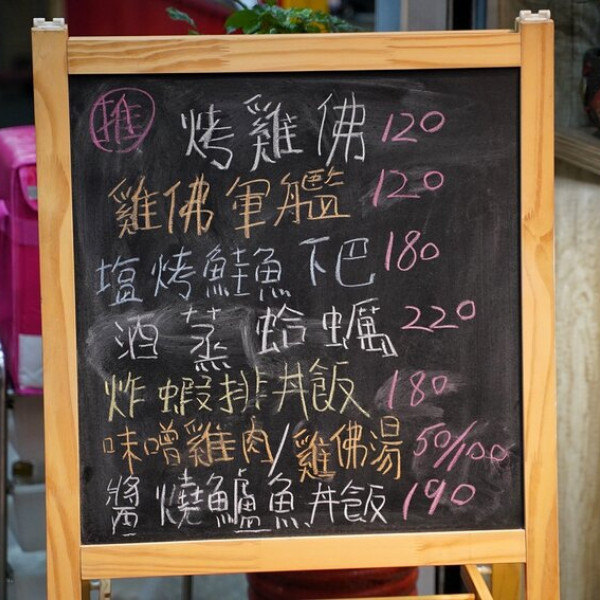 推 烤雞佛 120
雞佛軍艦 120
塩烤鮭魚下巴 180
酒蒸蛤蠣 220
炸蝦排丼飯 180
味噌雞肉/雞佛湯 50/100
醬燒鱸魚丼飯 190